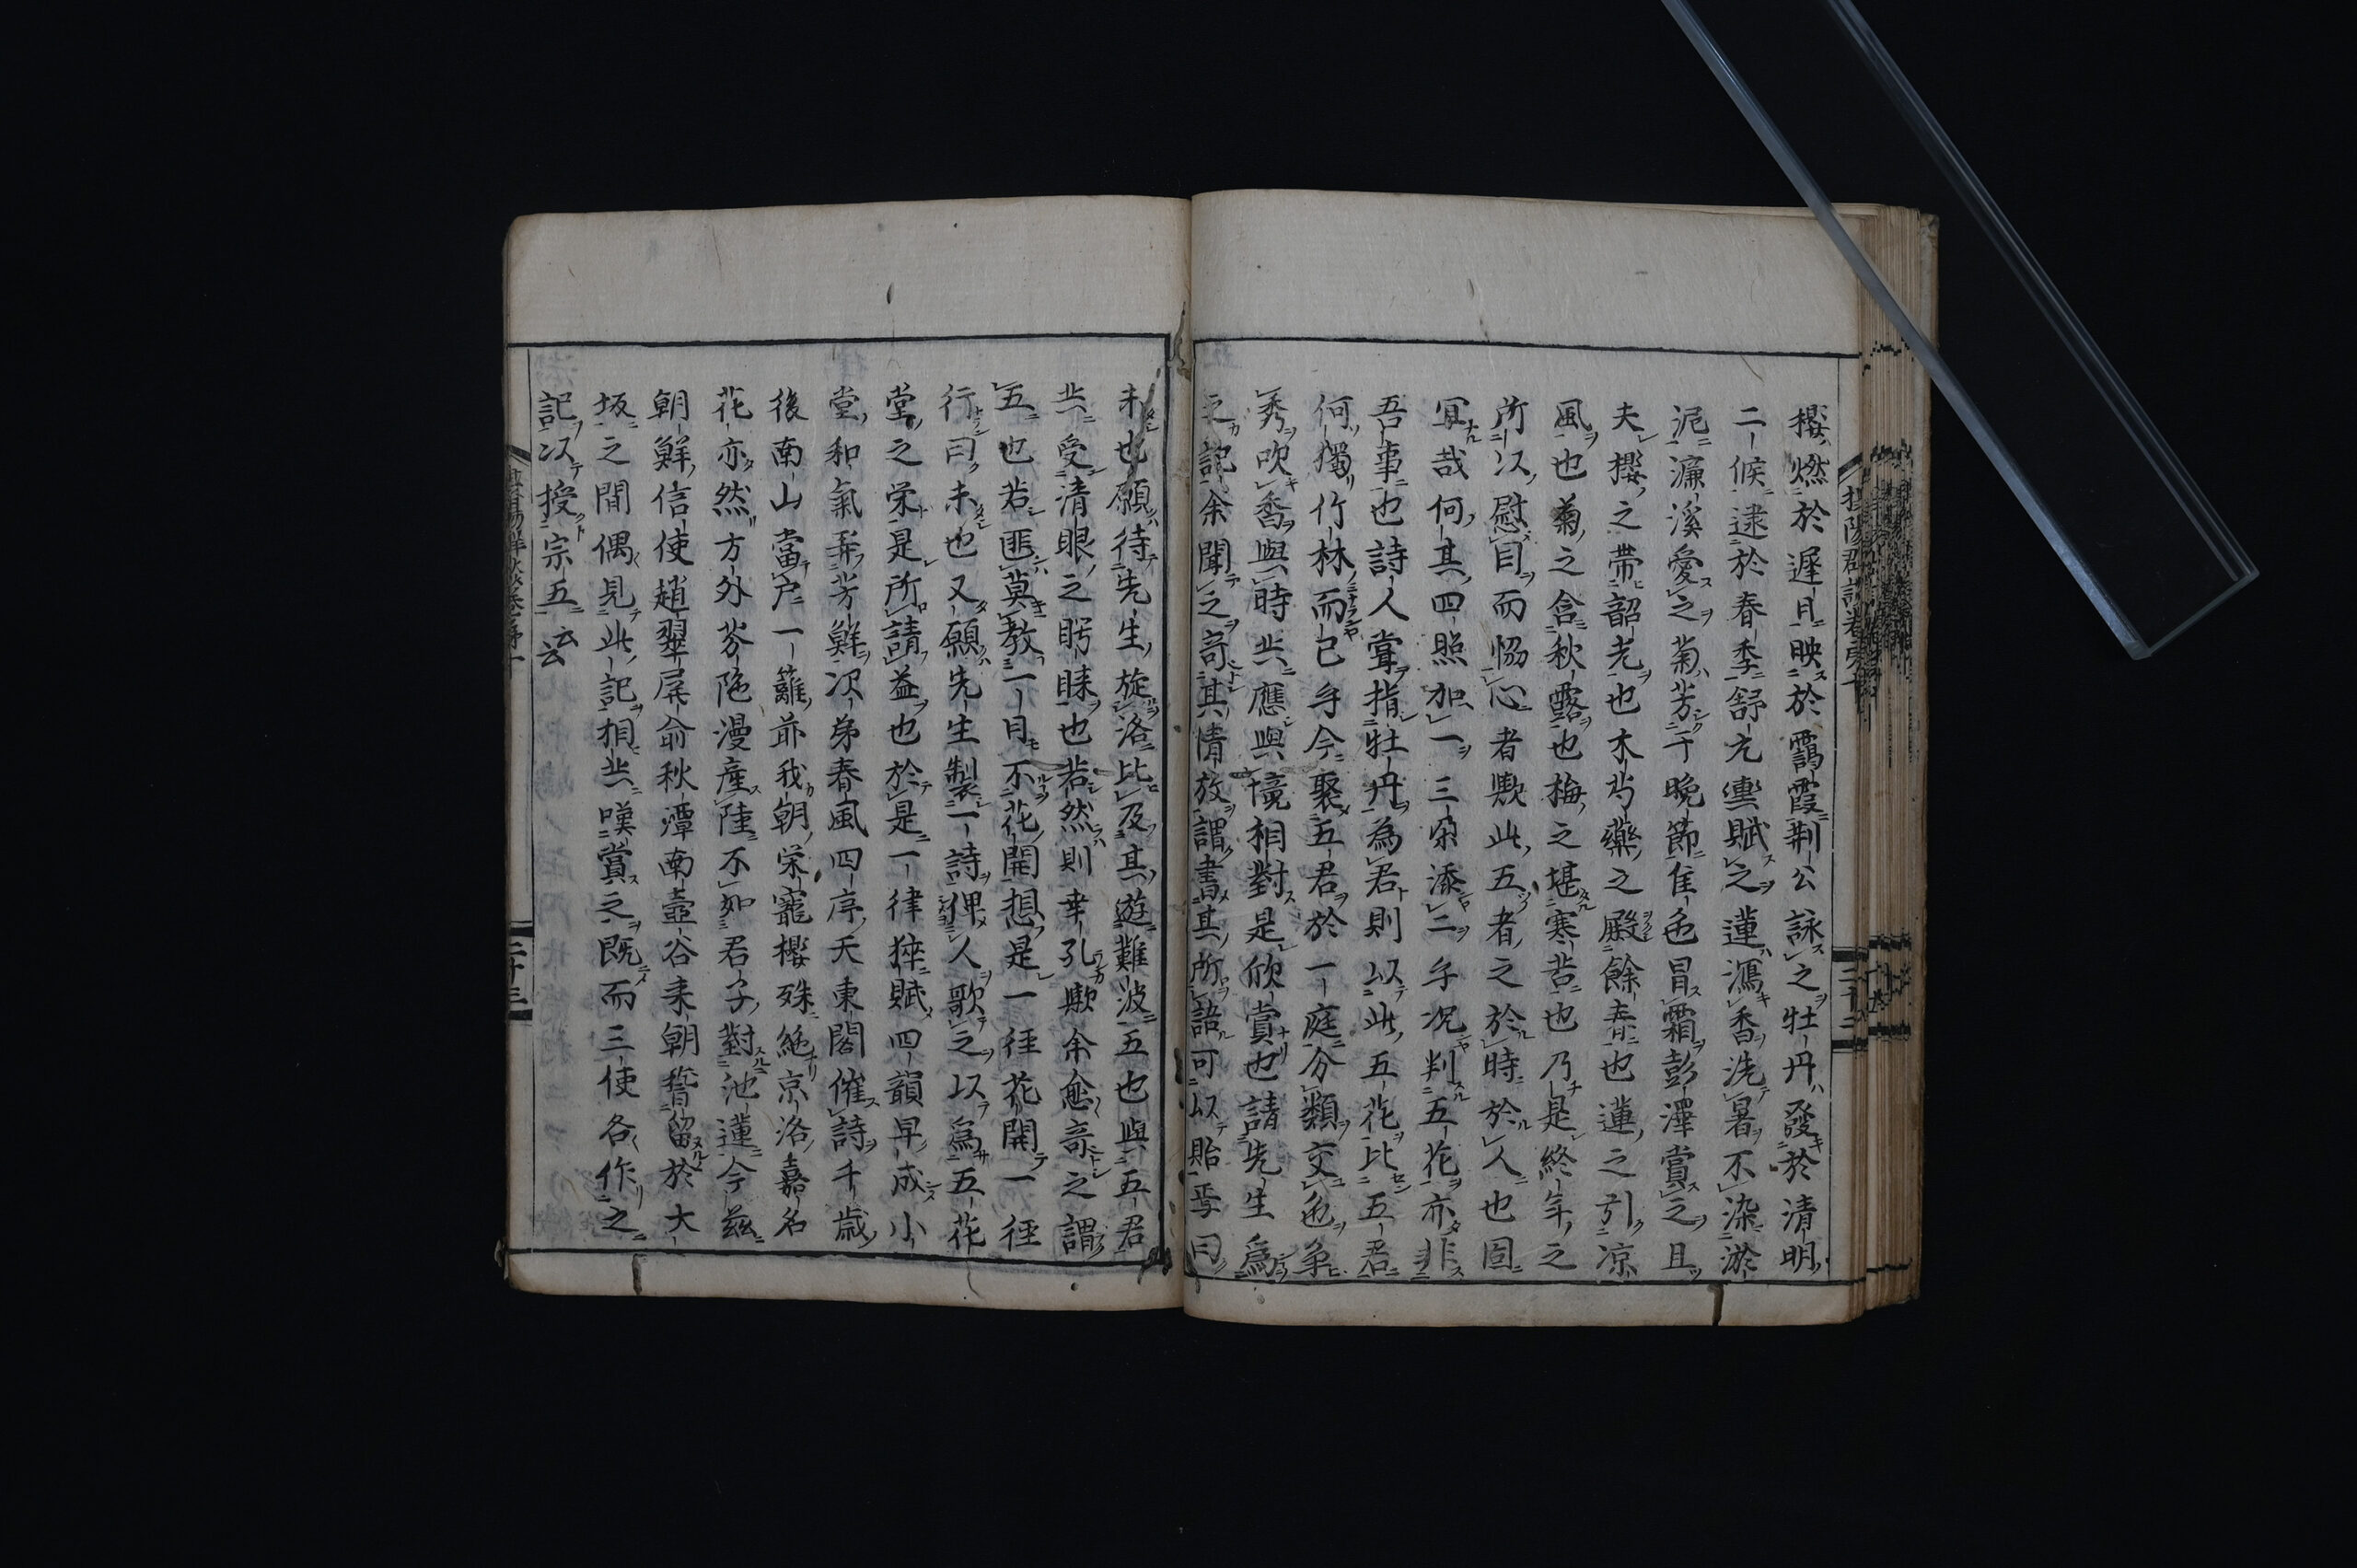 櫻燃於遲日映於靄霞荆公詠之牡丹發於清明
二候逮於春季舒元輿賦之蓮瀉香洗暑不染淤
泥濂溪愛之菊芳于晩節隹色冒霜彭澤賞之且
夫櫻之帯韶光也木芍藥之殿餘春也蓮之引凉
風也菊之含秋露也梅之堪寒苦也乃是終年之
所以慰目而恊心者歟此五者之於時於人也固
冝哉何其四照加一三朶添二乎況判五花亦非
吾事也詩人甞指牡丹為君則以此五花比五君
何獨竹林而已乎今聚五君於一庭分類交色争
秀吹香與時共應與境相對是欣賞也請先生為
之記余聞之奇其情放謂書其所語可以貽焉曰
未也願待先生旋洛比及其遊難波五也與五君
共受清眼之眄睞也若然則幸孔歟余愈竒之謂
五也若匪莫教一日不花開想是一徑花開一徑
行曰未也又願先生製一詩俾人歌之以為五花
堂之栄是所請益也於是一律猝賦四韻早成小
堂和氣弄芳鮮次弟春風四序天東閣催詩千歳
後南山當戸一籬前我朝栄寵櫻殊絶京洛嘉名
花亦然方外芬陁漫産陸不如君子對池蓮今兹
朝鮮信使趙翠屏俞秋潭南壷谷来朝暫留於大
坂之間偶見此記相共嘆賞之既而三使各作之
記以授宗五云云
二十三